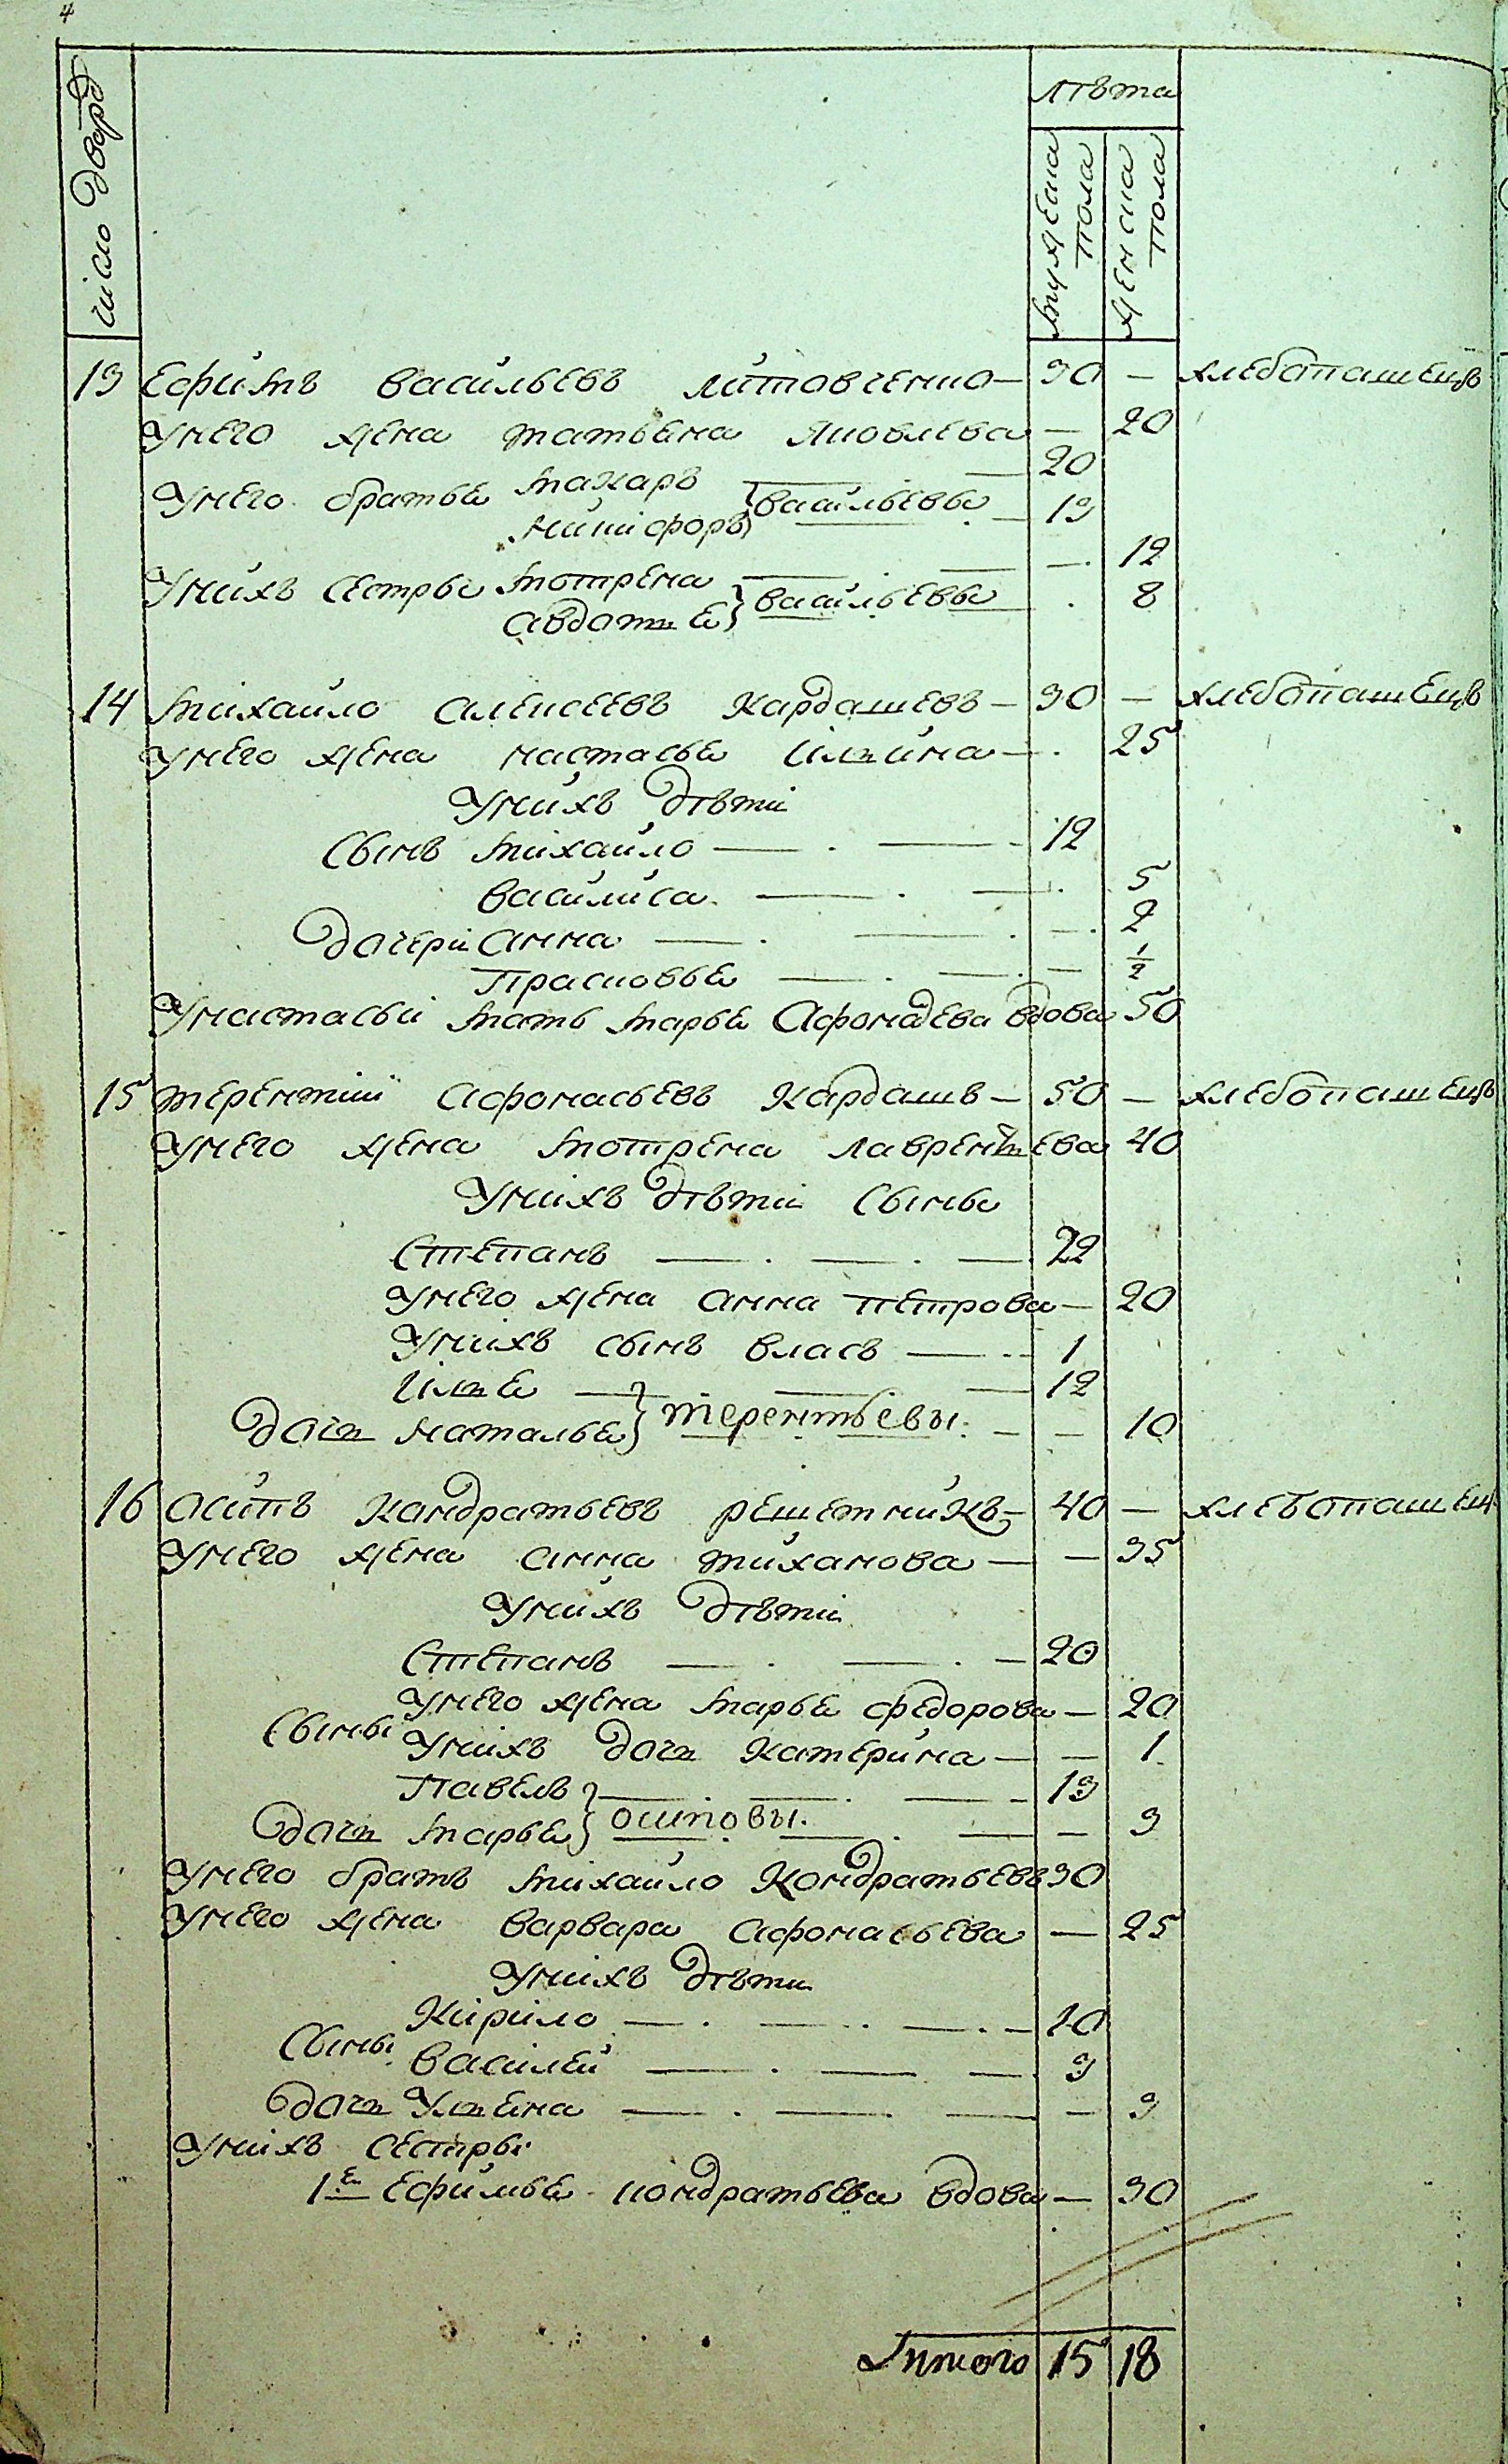 4
число дворо
лѣта
мужеска пола
женска пола
13 Ефимъ васильевъ литовченко — 30 — хлебопашецъ
Унего жена татьяна яковлева — 20
Унего братья макаръ — 20
никифоръ } васильевы — 13
Унихъ сестры мотрена — 12
авдотья } васильевы 8
14 михайло алексеевъ Кардашевъ — 30 — хлебопашецъ
Унего жена настасья ильина — 25
Унихъ дѣти
Сынъ михайло — 12
василиса — 5
дочери анна — 2
Прасковья — 1/2
Унастасьи мать марья Афонадева вдова 50
15 терентий Афонасьевъ Кардашъ — 50 — хлебопашецъ
Унего жена мотрена лаврентьева 40
Унихъ дѣти Сыны
Степанъ — 22
Унего жена анна петрова — 20
Унихъ сынъ власъ — 1
илья — 12
дочь наталья } терентьевы. — 10
16 осипъ Кондратьевъ решетникъ — 40 — хлебопашец
Унего жена анна тиханова — 35
Унихъ дѣти
Степанъ — 20
Унего жена марья федорова — 20
Сыны
Унихъ дочь катерина — 1
Павелъ — 13
дочь марья } осиповы. — 3
Унего братъ михайло Кондратьевъ 30
Унего жена варвара афонасьева — 25
Унихъ дѣти
Кирило — 10
Сыны
василей — 3
дочь Ульяна — 3
Унихъ сестры
1я Ефимья кондратьева вдова — 30
Итого 15 18